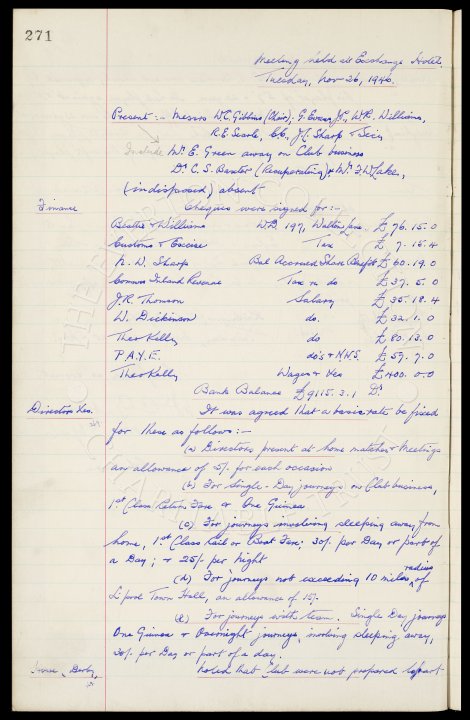 271
Meeting held at Exchange Hotel,
Tuesday, Nov 26, 1946.
Present:- Messrs W.C. Gibbins (Chair), G. Evans J.P., W.R. Williams,
R.E. Searle, C.C., J.C. Sharp & Secy
Include Mr E. Green away on Club business
Dr C.S. Baxter (Recuperating) & Mr F.W. Lake,
(indisposed) absent
Finance
Cheques were signed for:-
Beattie & Williams W.D. 197, Walton Lane £76.15.0
Customs & Excise Tax £ 7.16.4
N.W. Sharp Bal Accrued Share £60.19.0
Comms Inland Revenue Tax n do £37.5.0
J.R. Thomson Salary £35.18.4
W. Dickinson do. £32.1.0
Theo Kelly do £80.13.0
P.A.Y.E. do's & N.H.S. £59.7.0
Theo Kelly Wages & Xes £400.0.0
Bank Balance £9115.3.1 Dr
Directors Xes.
It was agreed that a basis rate be fixed
for these as follows:-
(a) Directors present at home matches & Meetings
an allowance of 5/- for each occasion
(b) For Single-Day journeys on Club business,
1st Class Return Fare & One Guinea
(c) For journeys involving sleeping away from
home, 1st Class Rail or Boat Fare; 30/- per Day or part of
a Day; & 25/- per night
(d) For journeys not exceeding 10 miles radius of
L'pool Town Hall, an allowance of 15/-
(e) For journeys with team. Single Day journeys
One Guinea & Overnight journeys, involving sleeping away,
30/- per Day or part of a day.
Derby,
Noted that Club were not prepared to part